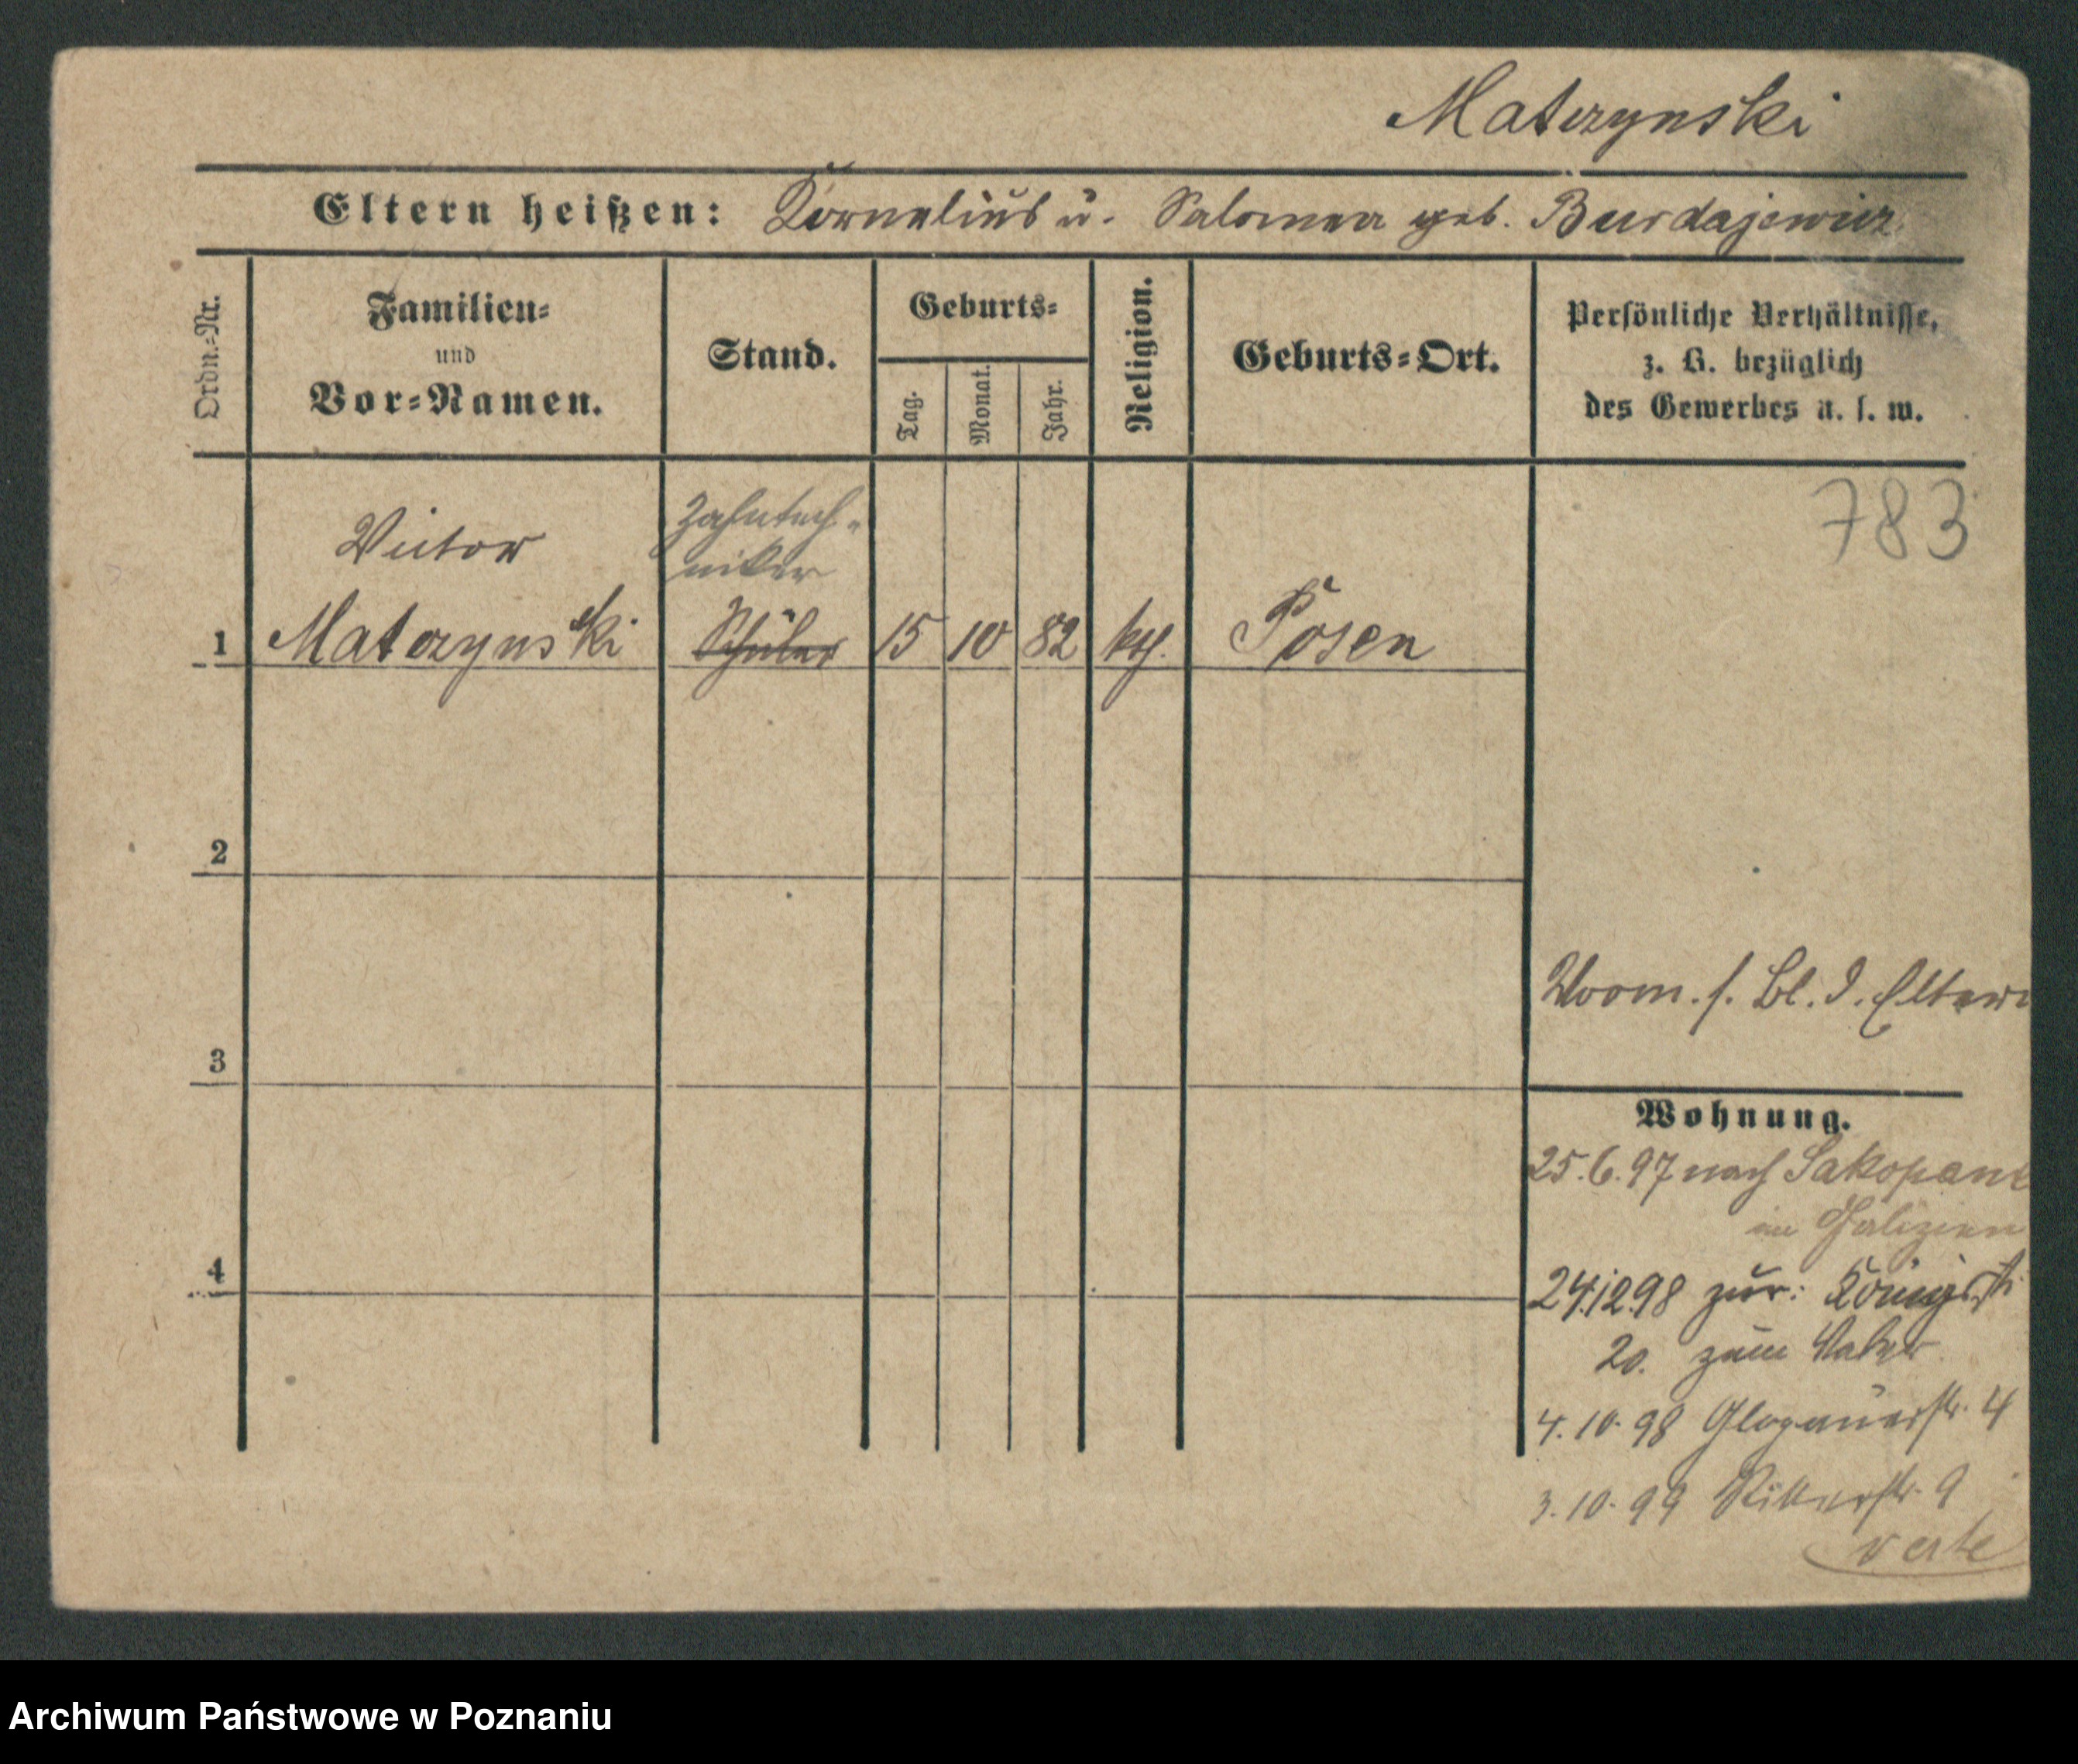 Matczynski
Eltern heißen: Kornelius u. Salomea geb. Burdajewicz
Ordn.-Nr.
Familien-
und
Vor-Namen.
Stand.
Geburts-
Tag.
Monat.
Jahr.
Religion.
Geburts-Ort.
Persönliche Verhältnisse,
z. B. bezüglich
des Gewerbes u. s. w.
783
Victor
Zahntech-
niker
1 Matczynski Schüler 15 10 82 kth. Posen
2
3
4
Vorm. s. Bl. d. Eltern
Wohnung.
25.6.97 nach Sakopane
in Galizien
24.12.98 zur: Königsstr
20. zum Vater
4.10.98 Glogauerstr. 4
3.10.99 Ritterstr. 9
verte
Archiwum Państwowe w Poznaniu